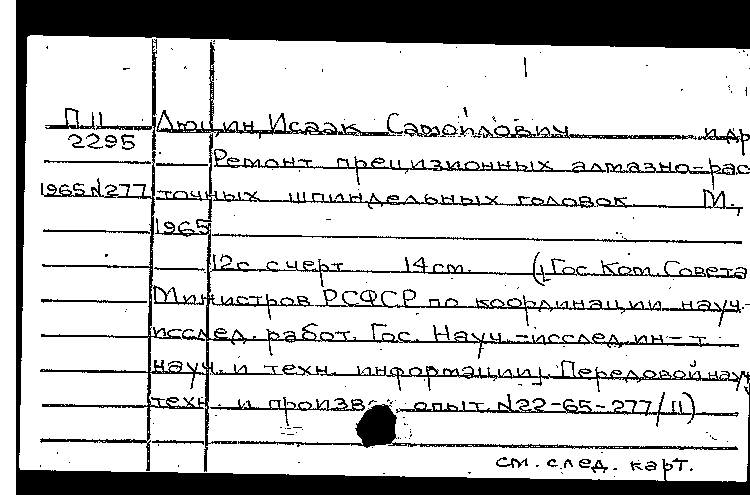 П 11 Люцин, Исаак Самойлович и др
2295
Ремонт прецизионных алмазно-рас-
1965 N277 точных шпиндельных головок М.,
1965
12с с черт 14 см. (Гос. Ком. Совета
Министров РСФСР по координации науч.-
исслед. работ. Гос. Науч.-исслед. ин-т
науч. и техн. информации]. Передовой науч
техн. и произв опыт. N22-65-277/11)
см. след. карт.